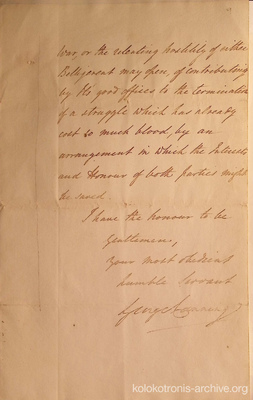 War, or the relenting hostility of either
Belligerent may open, of contributing
by its good offices to the termination
of a struggle which has already
cost so much blood, by an
arrangement in which the Interests
and Honour of both parties might
be saved.
I have the honour to be
Gentlemen,
Your most obedient
humble Servant
George Canning
kolokotronis-archive.org